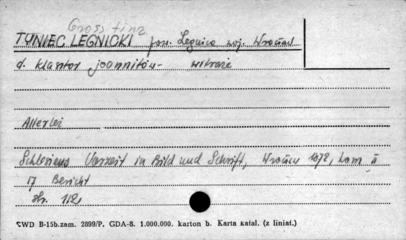 Gross tinz
TYNIEC LEGNICKI pow. Legnica woj. Wrocław
d. klasztor joannitów - witraże
Allerlei
Schlesiens Vorzeit in Bild und Schrift, 1872,
17 Bericht
str. 112,
CWD B-15b.zam. 2899/P. GDA-8. 1.000.000. karton b. Karta katal. (z liniat.)